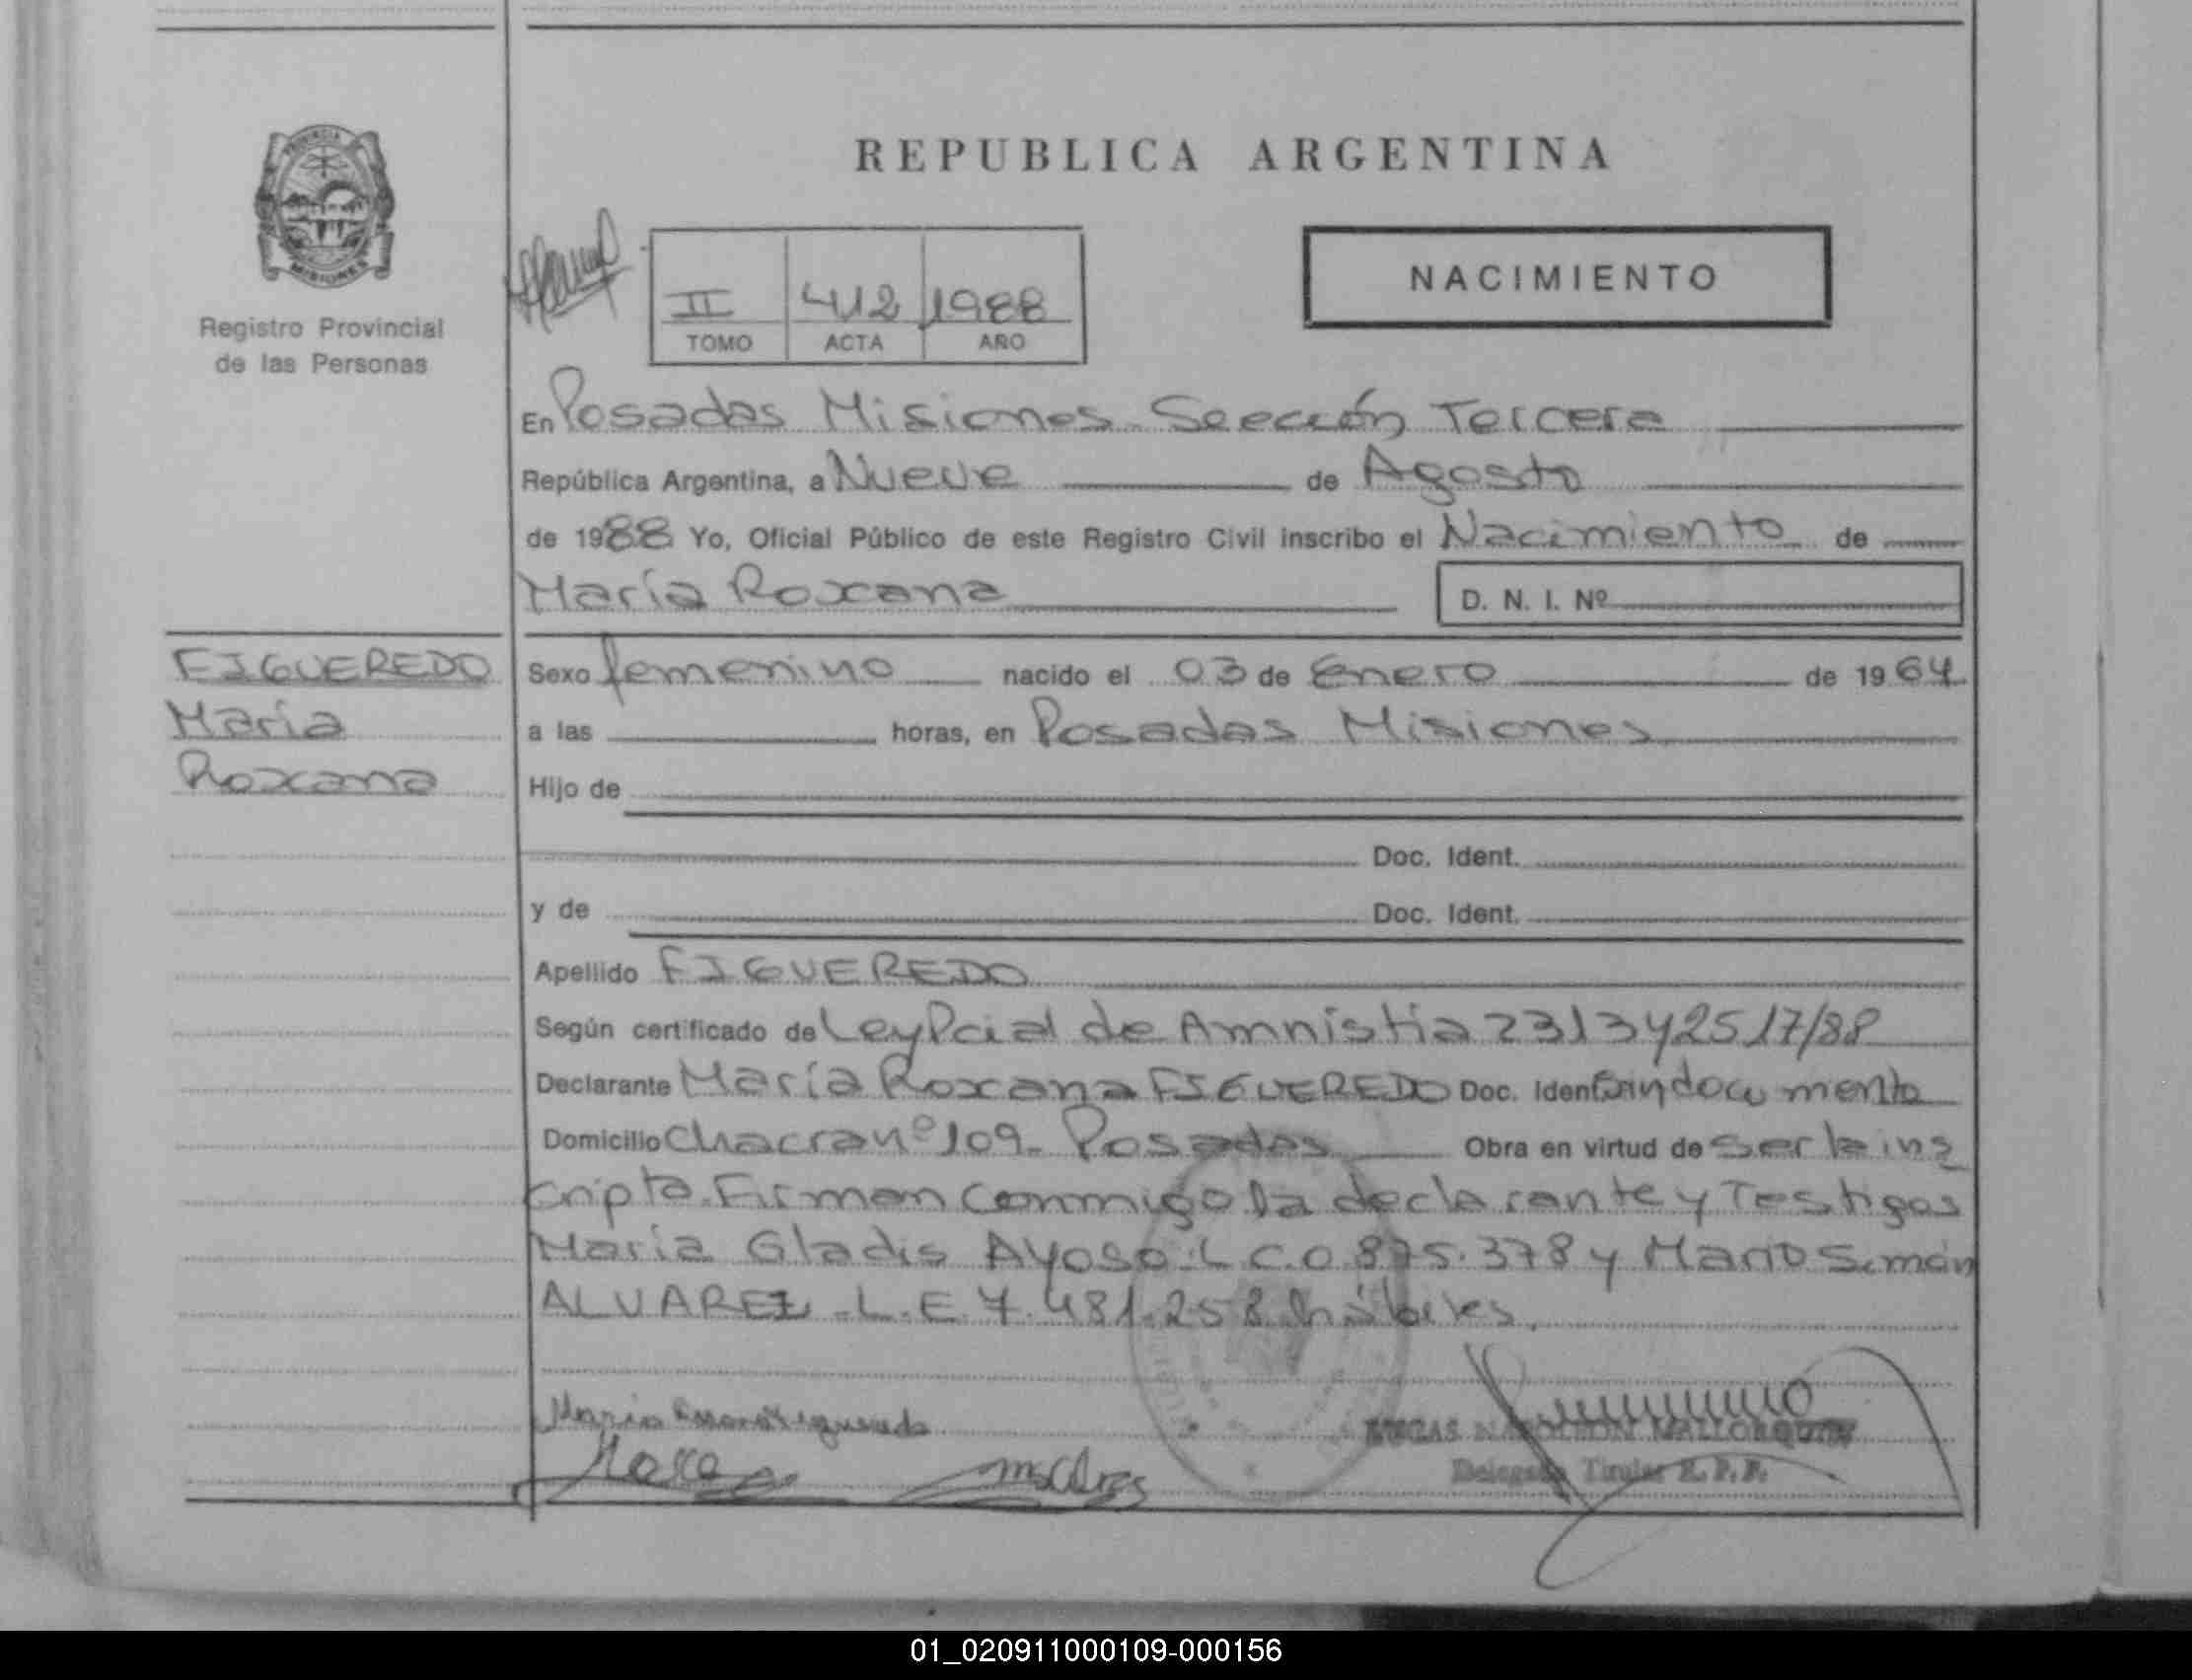 REPUBLICA ARGENTINA
PROVINCIA
MISIONES
Registro Provincial
de las Personas
II 412 1988
TOMO ACTA AÑO
NACIMIENTO
En Posadas Misiones. Sección Tercera
República Argentina, a Nueve de Agosto
de 1988 Yo, Oficial Público de este Registro Civil inscribo el Nacimiento de
María Roxana D. N. I. Nº
FIGUEREDO
María
Roxana
Sexo femenino nacido el 03 de Enero de 1964
a las horas, en Posadas Misiones
Hijo de
Doc. Ident.
y de Doc. Ident.
Apellido FIGUEREDO
Según certificado de Ley Pcial de Amnistia 2313 y 2517/88
Declarante María Roxana FIGUEREDO Doc. Ident. Indocumenta
Domicilio Chacra nº 109. Posadas Obra en virtud de ser la ins
cripta. Firman conmigo la declarante y Testigos
María Gladis Ayoso L.C. 0.875.378 y Mario Simón
ALVAREZ - L.E. 7.481.258 hábiles.
NAPOLEON MALLORQUIN
Delegado Titular R. P. P.
01_020911000109-000156